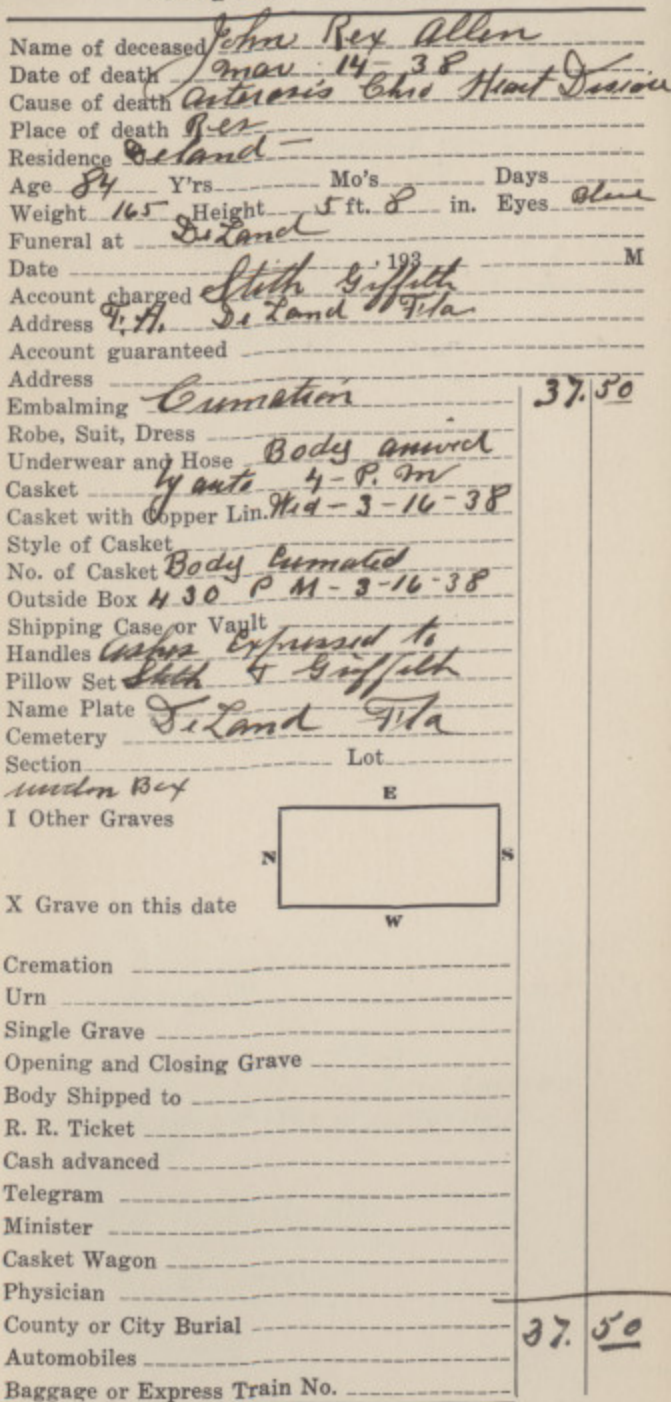 Name of deceased John Rex Allen
Date of death Mar 14 - 38
Cause of death Chro Heart Disease
Place of death Res
Residence Deland -
Age 84 Y'rs Mo's Days
Weight 165 Height 5 ft. 8 in. Eyes Blue
Funeral at DeLand
Date , 193 M
Account charged Stith Giffith
Address F.A. DeLand Fla
Account guaranteed
Address
Embalming Cremation 37. 50
Robe, Suit, Dress
Underwear and Hose Body arrived
Casket by auto 4 - P. M
Casket with Copper Lin. Wed - 3 - 16 - 38
Style of Casket
No. of Casket Body Cremated
Outside Box 4 30 P M - 3 - 16 - 38
Shipping Case or Vault
Handles Ashes Expressed to
Pillow Set Stith & Griffith
Name Plate
Cemetery DeLand Fla
Section Lot
Box
I Other Graves
E
N S
W
X Grave on this date
Cremation
Urn
Single Grave
Opening and Closing Grave
Body Shipped to
R. R. Ticket
Cash advanced
Telegram
Minister
Casket Wagon
Physician
County or City Burial 37. 50
Automobiles
Baggage or Express Train No.